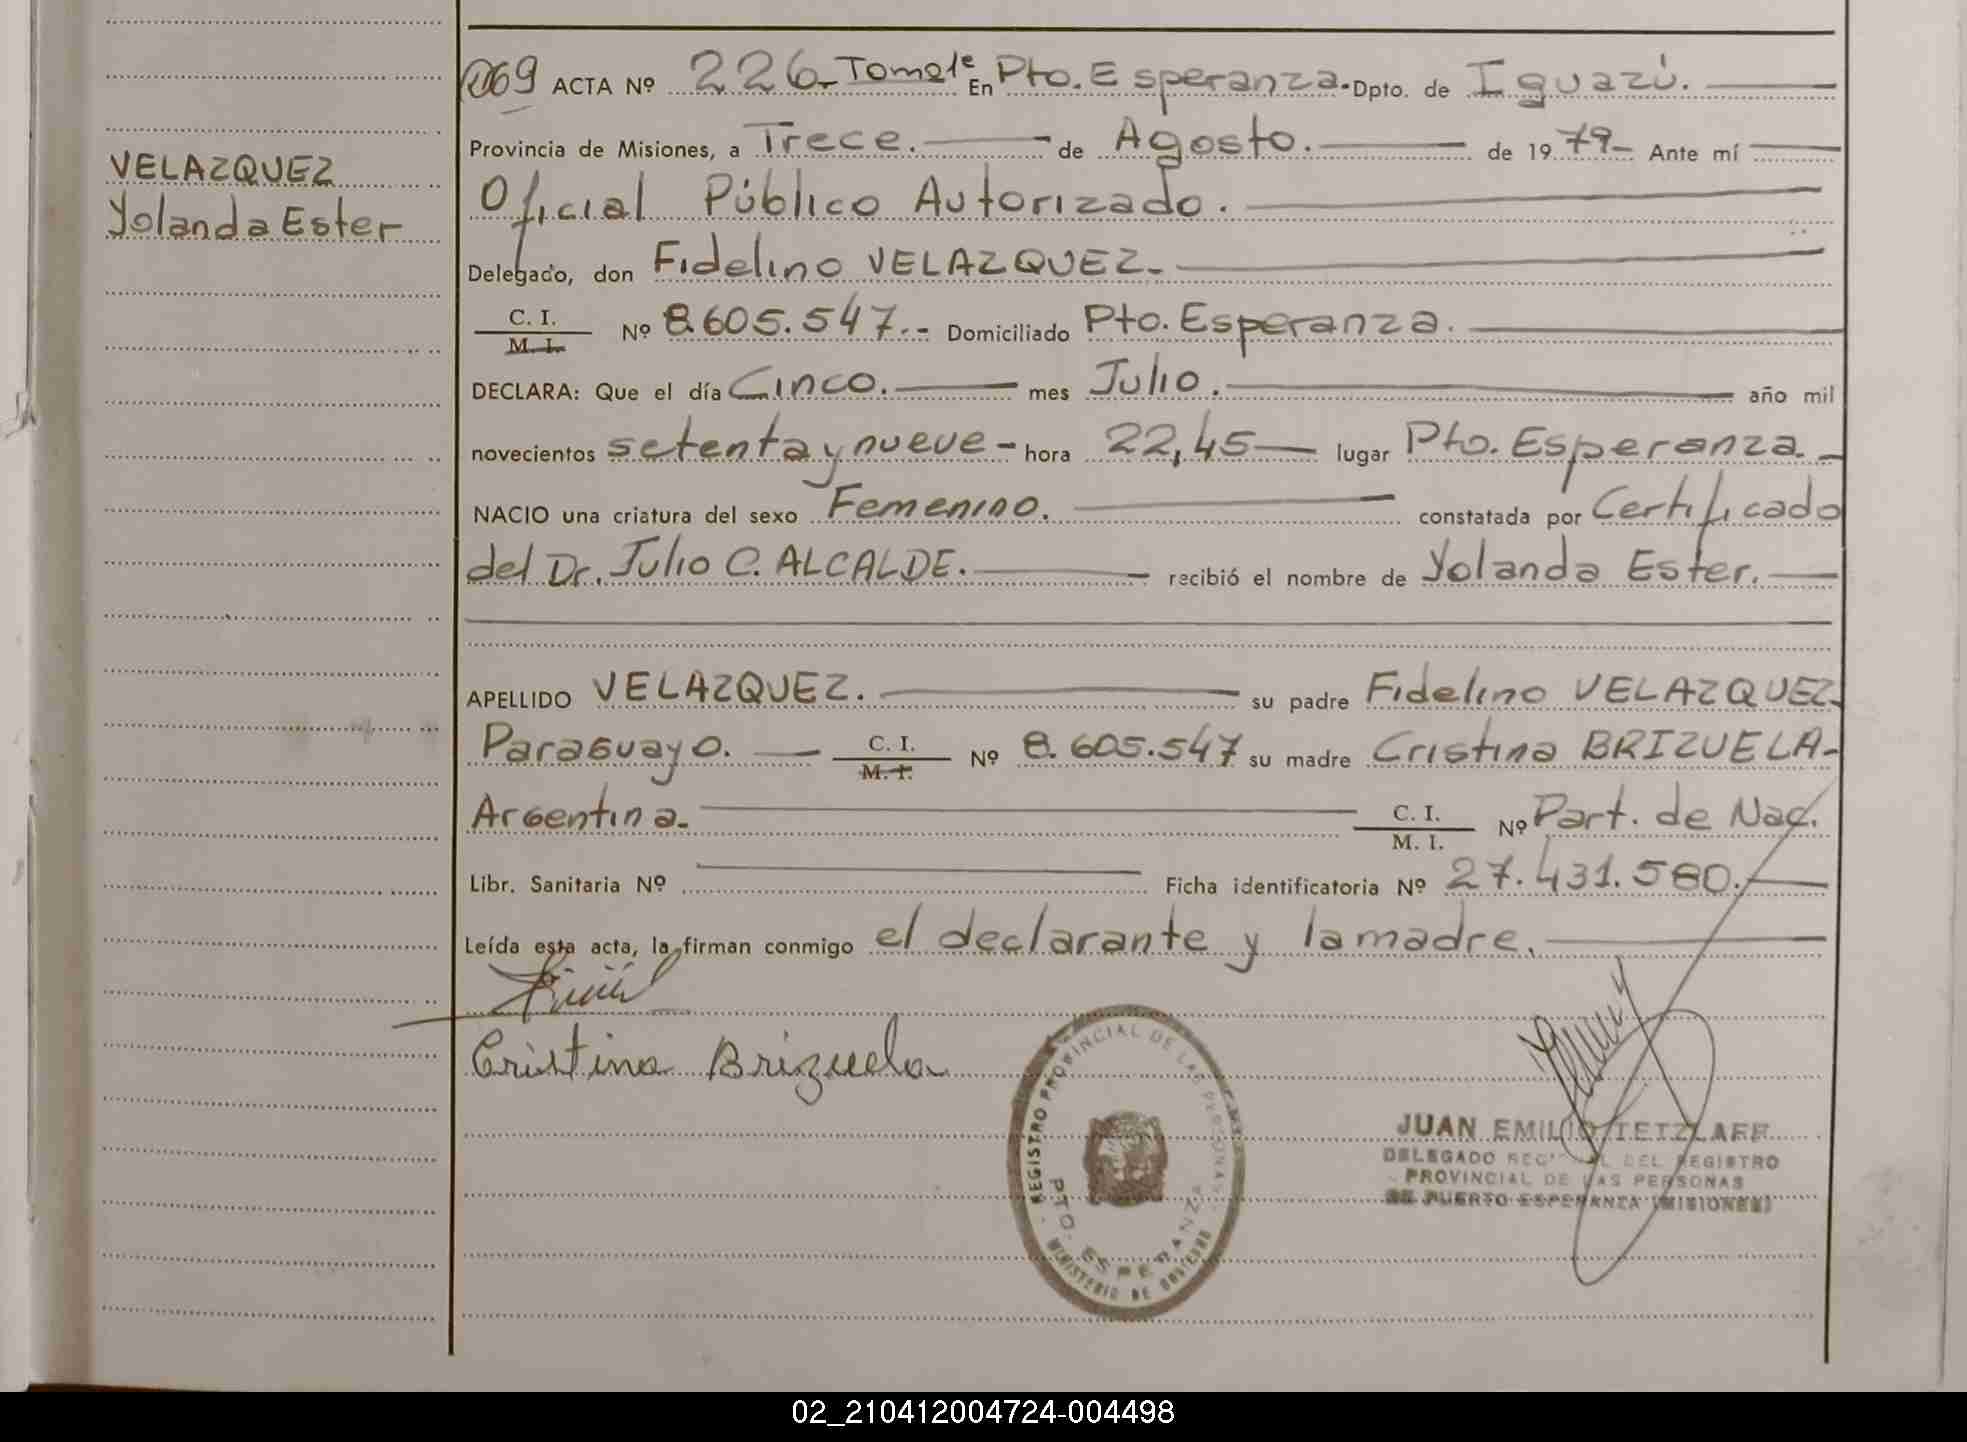 069 ACTA Nº 226- Tomo 1º En Pto. Esperanza. Dpto. de Iguazú.
Provincia de Misiones, a Trece. de Agosto. de 1979- Ante mí
VELAZQUEZ
Yolanda Ester
Oficial Público Autorizado.
Delegado, don Fidelino VELAZQUEZ-
C. I.
M. I.
Nº 8.605.547.- Domiciliado Pto. Esperanza.
DECLARA: Que el día Cinco. mes Julio. año mil
novecientos setenta y nueve - hora 22,45 lugar Pto. Esperanza.
NACIO una criatura del sexo Femenino. constatada por Certificado
del Dr. Julio C. ALCALDE. recibió el nombre de Yolanda Ester.
APELLIDO VELAZQUEZ. su padre Fidelino VELAZQUEZ-
Paraguayo. C. I. M. I. Nº 8.605.547 su madre Cristina BRIZUELA-
Argentina- C. I. M. I. Nº Part. de Nac.
Libr. Sanitaria Nº Ficha identificatoria Nº 27.431.580.
Leída esta acta, la firman conmigo el declarante y la madre.
Cristina Brizuela
REGISTRO PROVINCIAL DE LAS PERSONAS
PTO. ESPERANZA
MINISTERIO DE GOBIERNO
JUAN EMILIO TETZLAFF
DELEGADO REGIONAL DEL REGISTRO
PROVINCIAL DE LAS PERSONAS
DE PUERTO ESPERANZA (MISIONES)
02_210412004724-004498